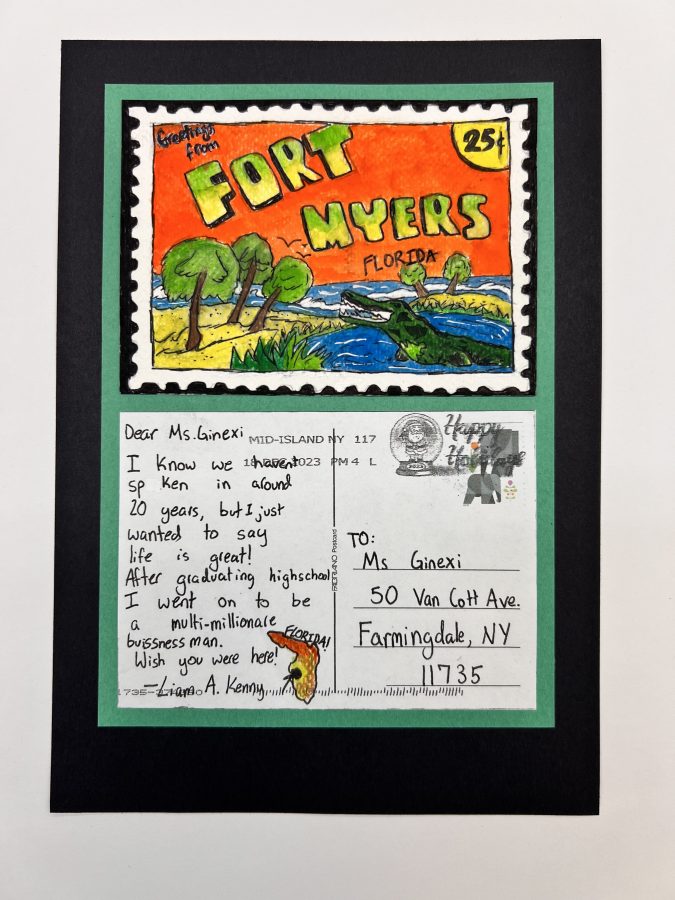 Greetings
from
FORT
MYERS
FLORIDA
25¢
Dear Ms. Ginexi
I Know we havent
sp ken in around
20 years, but I just
wanted to say
life is great!
After graduating highschool
I went on to be
a multi-millionare
buissness man.
Wish you were here!
—Liam A. Kenny
FLORIDA!
MID-ISLAND NY 117
18 DEC 2023 PM 4 L
2023
Happy
Postcard
TO:
Ms Ginexi
50 Van Cott Ave.
Farmingdale, NY
11735